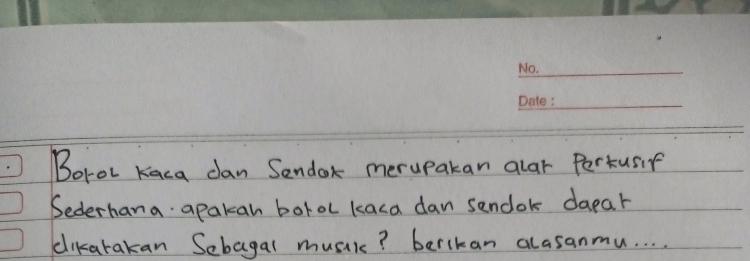 No.
Date :
Botol kaca dan Sendok merupakan alat Perkusif
Sederhana. apakah botol kaca dan sendok dapat
dikatakan Sebagai musik? berikan alasanmu....